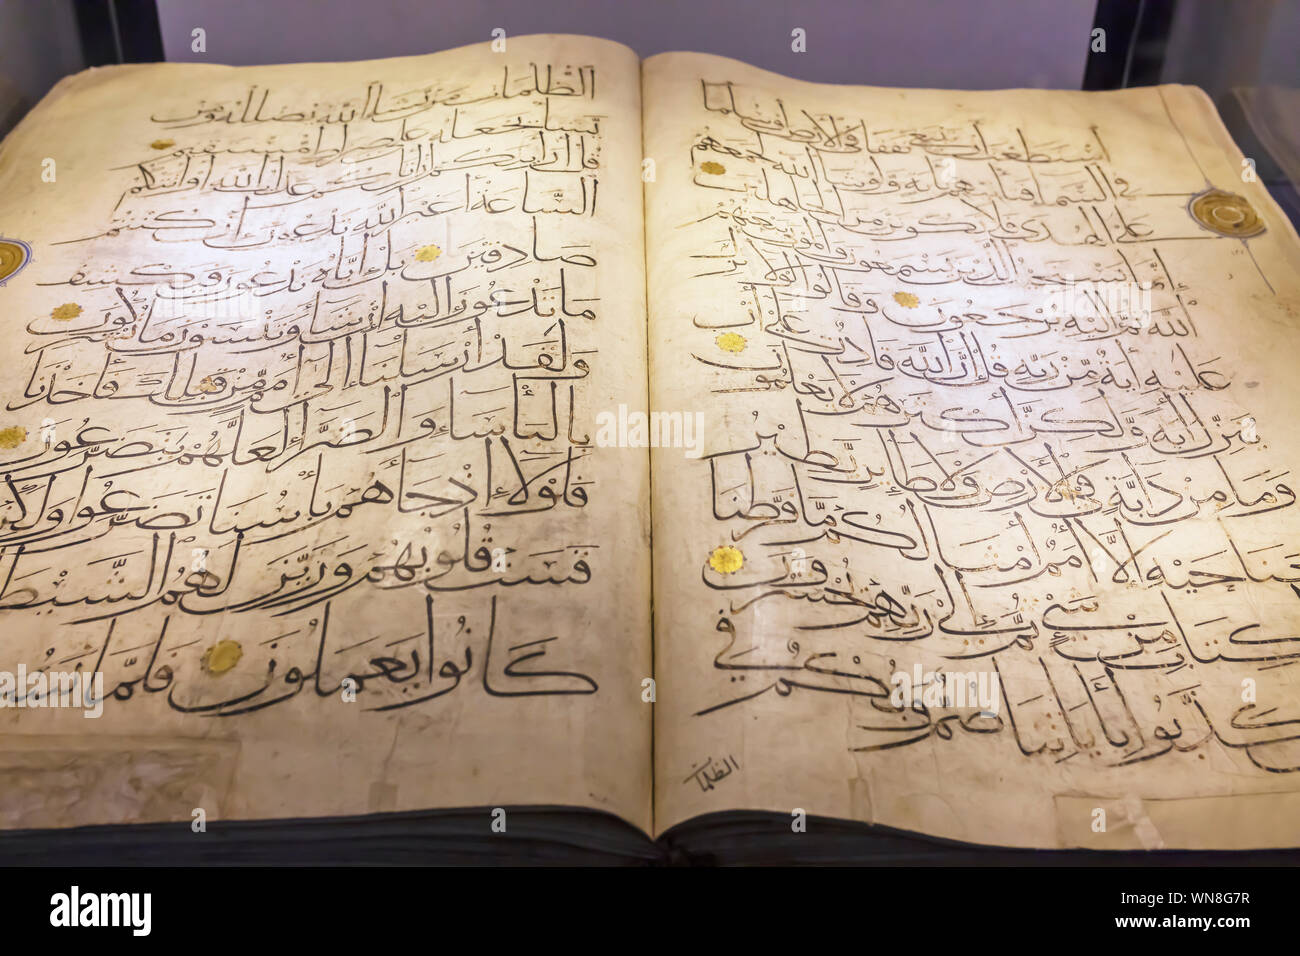 استطعت أن تبتغي نفقا في الأرض أو سلما
في السماء فتأتيهم بآية ولو شاء الله لجمعهم
على الهدى فلا تكونن من الجاهلين
إنما يستجيب الذين يسمعون والموتى يبعثهم
الله ثم إليه يرجعون وقالوا لولا نزل
عليه آية من ربه قل إن الله قادر على أن
ينزل آية ولكن أكثرهم لا يعلمون
وما من دابة في الأرض ولا طائر يطير
جناحيه إلا أمم أمثالكم ما فرطنا
كتاب من شيء ثم إلى ربهم يحشرون
كذبوا بآياتنا صم وبكم في
الظلمات
الظلمات من يشأ الله يضلله ومن
يشأ يجعله على صراط مستقيم
قل أرأيتكم إن أتاكم عذاب الله أو أتتكم
الساعة أغير الله تدعون إن كنتم
صادقين بل إياه تدعون فيكشف
ما تدعون إليه إن شاء وتنسون ما تشركون
ولقد أرسلنا إلى أمم من قبلك فأخذنا
بالبأساء والضراء لعلهم يتضرعون
فلولا إذ جاءهم بأسنا تضرعوا ولكن
قست قلوبهم وزين لهم
كانوا يعملون فلما
alamy
Image ID: WN8G7R
www.alamy.com